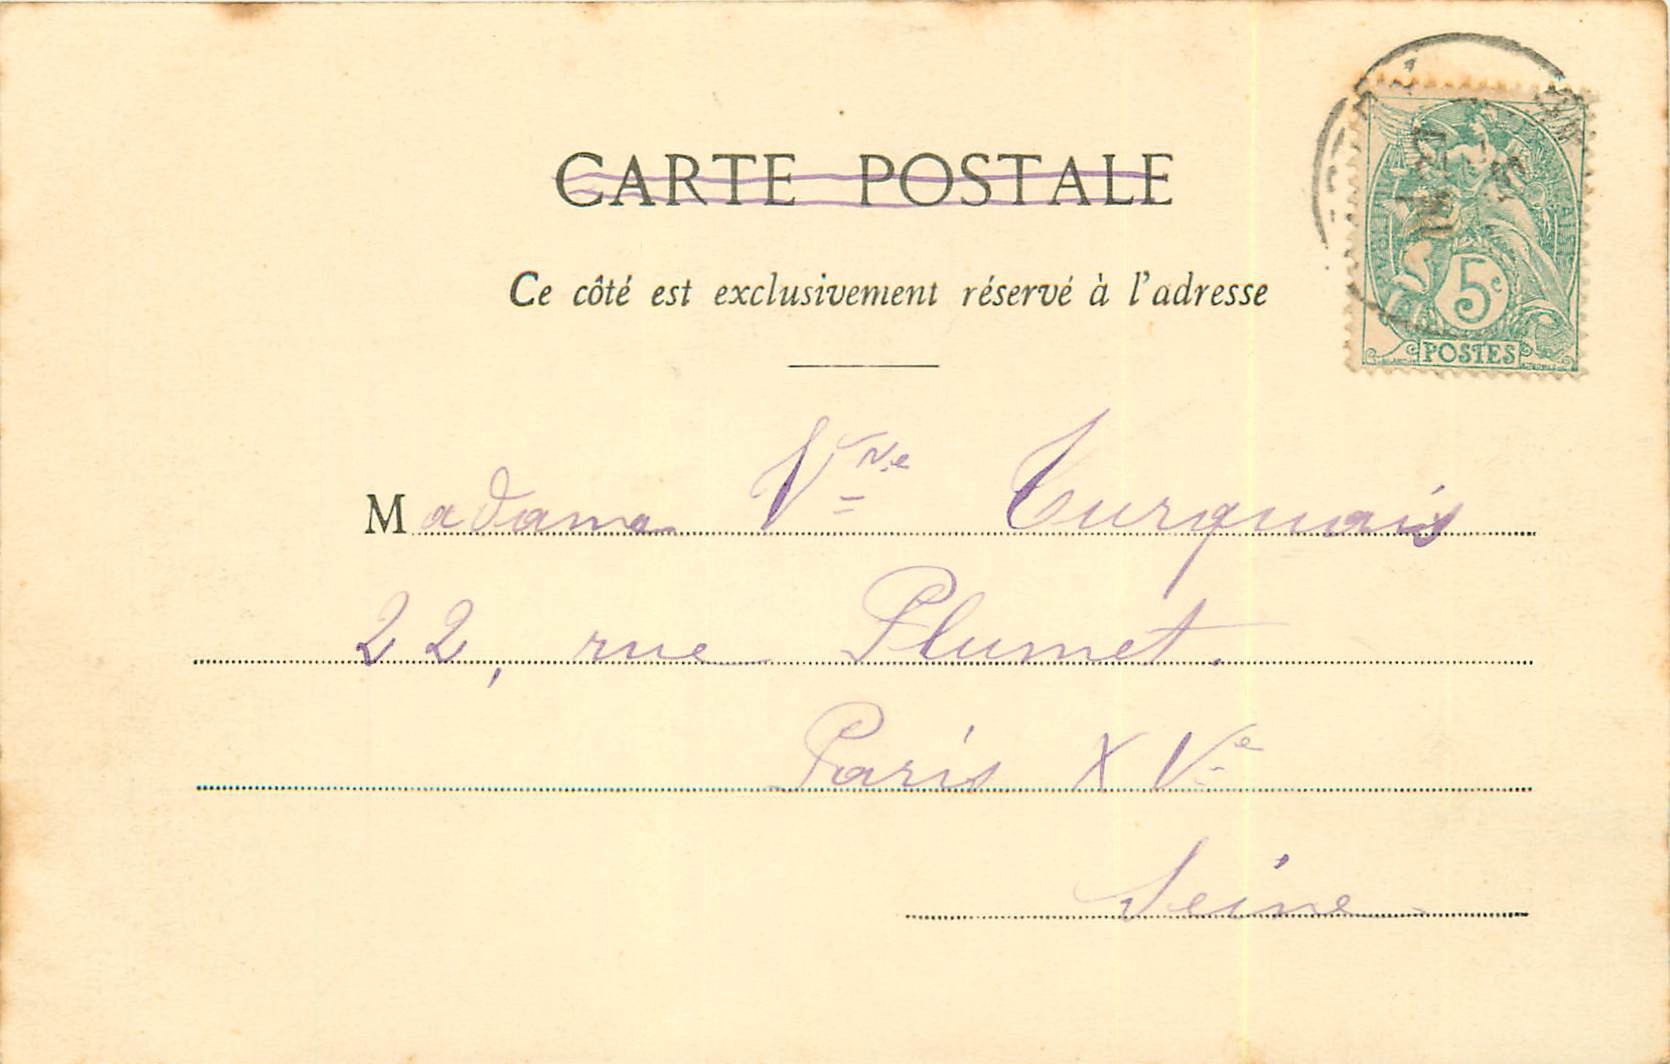 CARTE POSTALE
Ce côté est exclusivement réservé à l'adresse
5c
POSTES
Madame Vve Turquais
22, rue Plumet.
Paris XVe
Seine